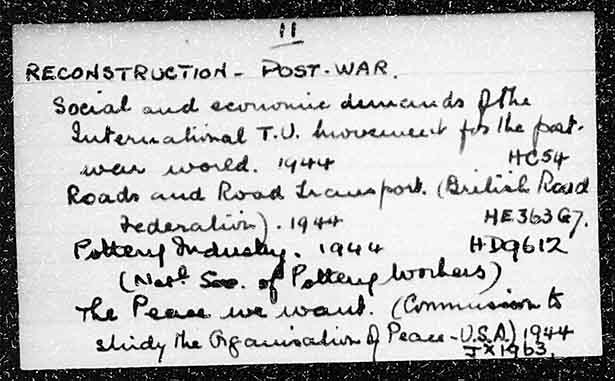 11
RECONSTRUCTION - POST-WAR.
Social and economic demands of the
International T.U. movement for the post-
war world. 1944 HC54
Roads and Road Transport. (British Road
Federation). 1944 HE363G7.
Pottery Industry. 1944 HD9612
(Natl. Soc. of Pottery Workers)
The Peace we want. (Commission to
study the Organisation of Peace - U.S.A.) 1944
JX1963.